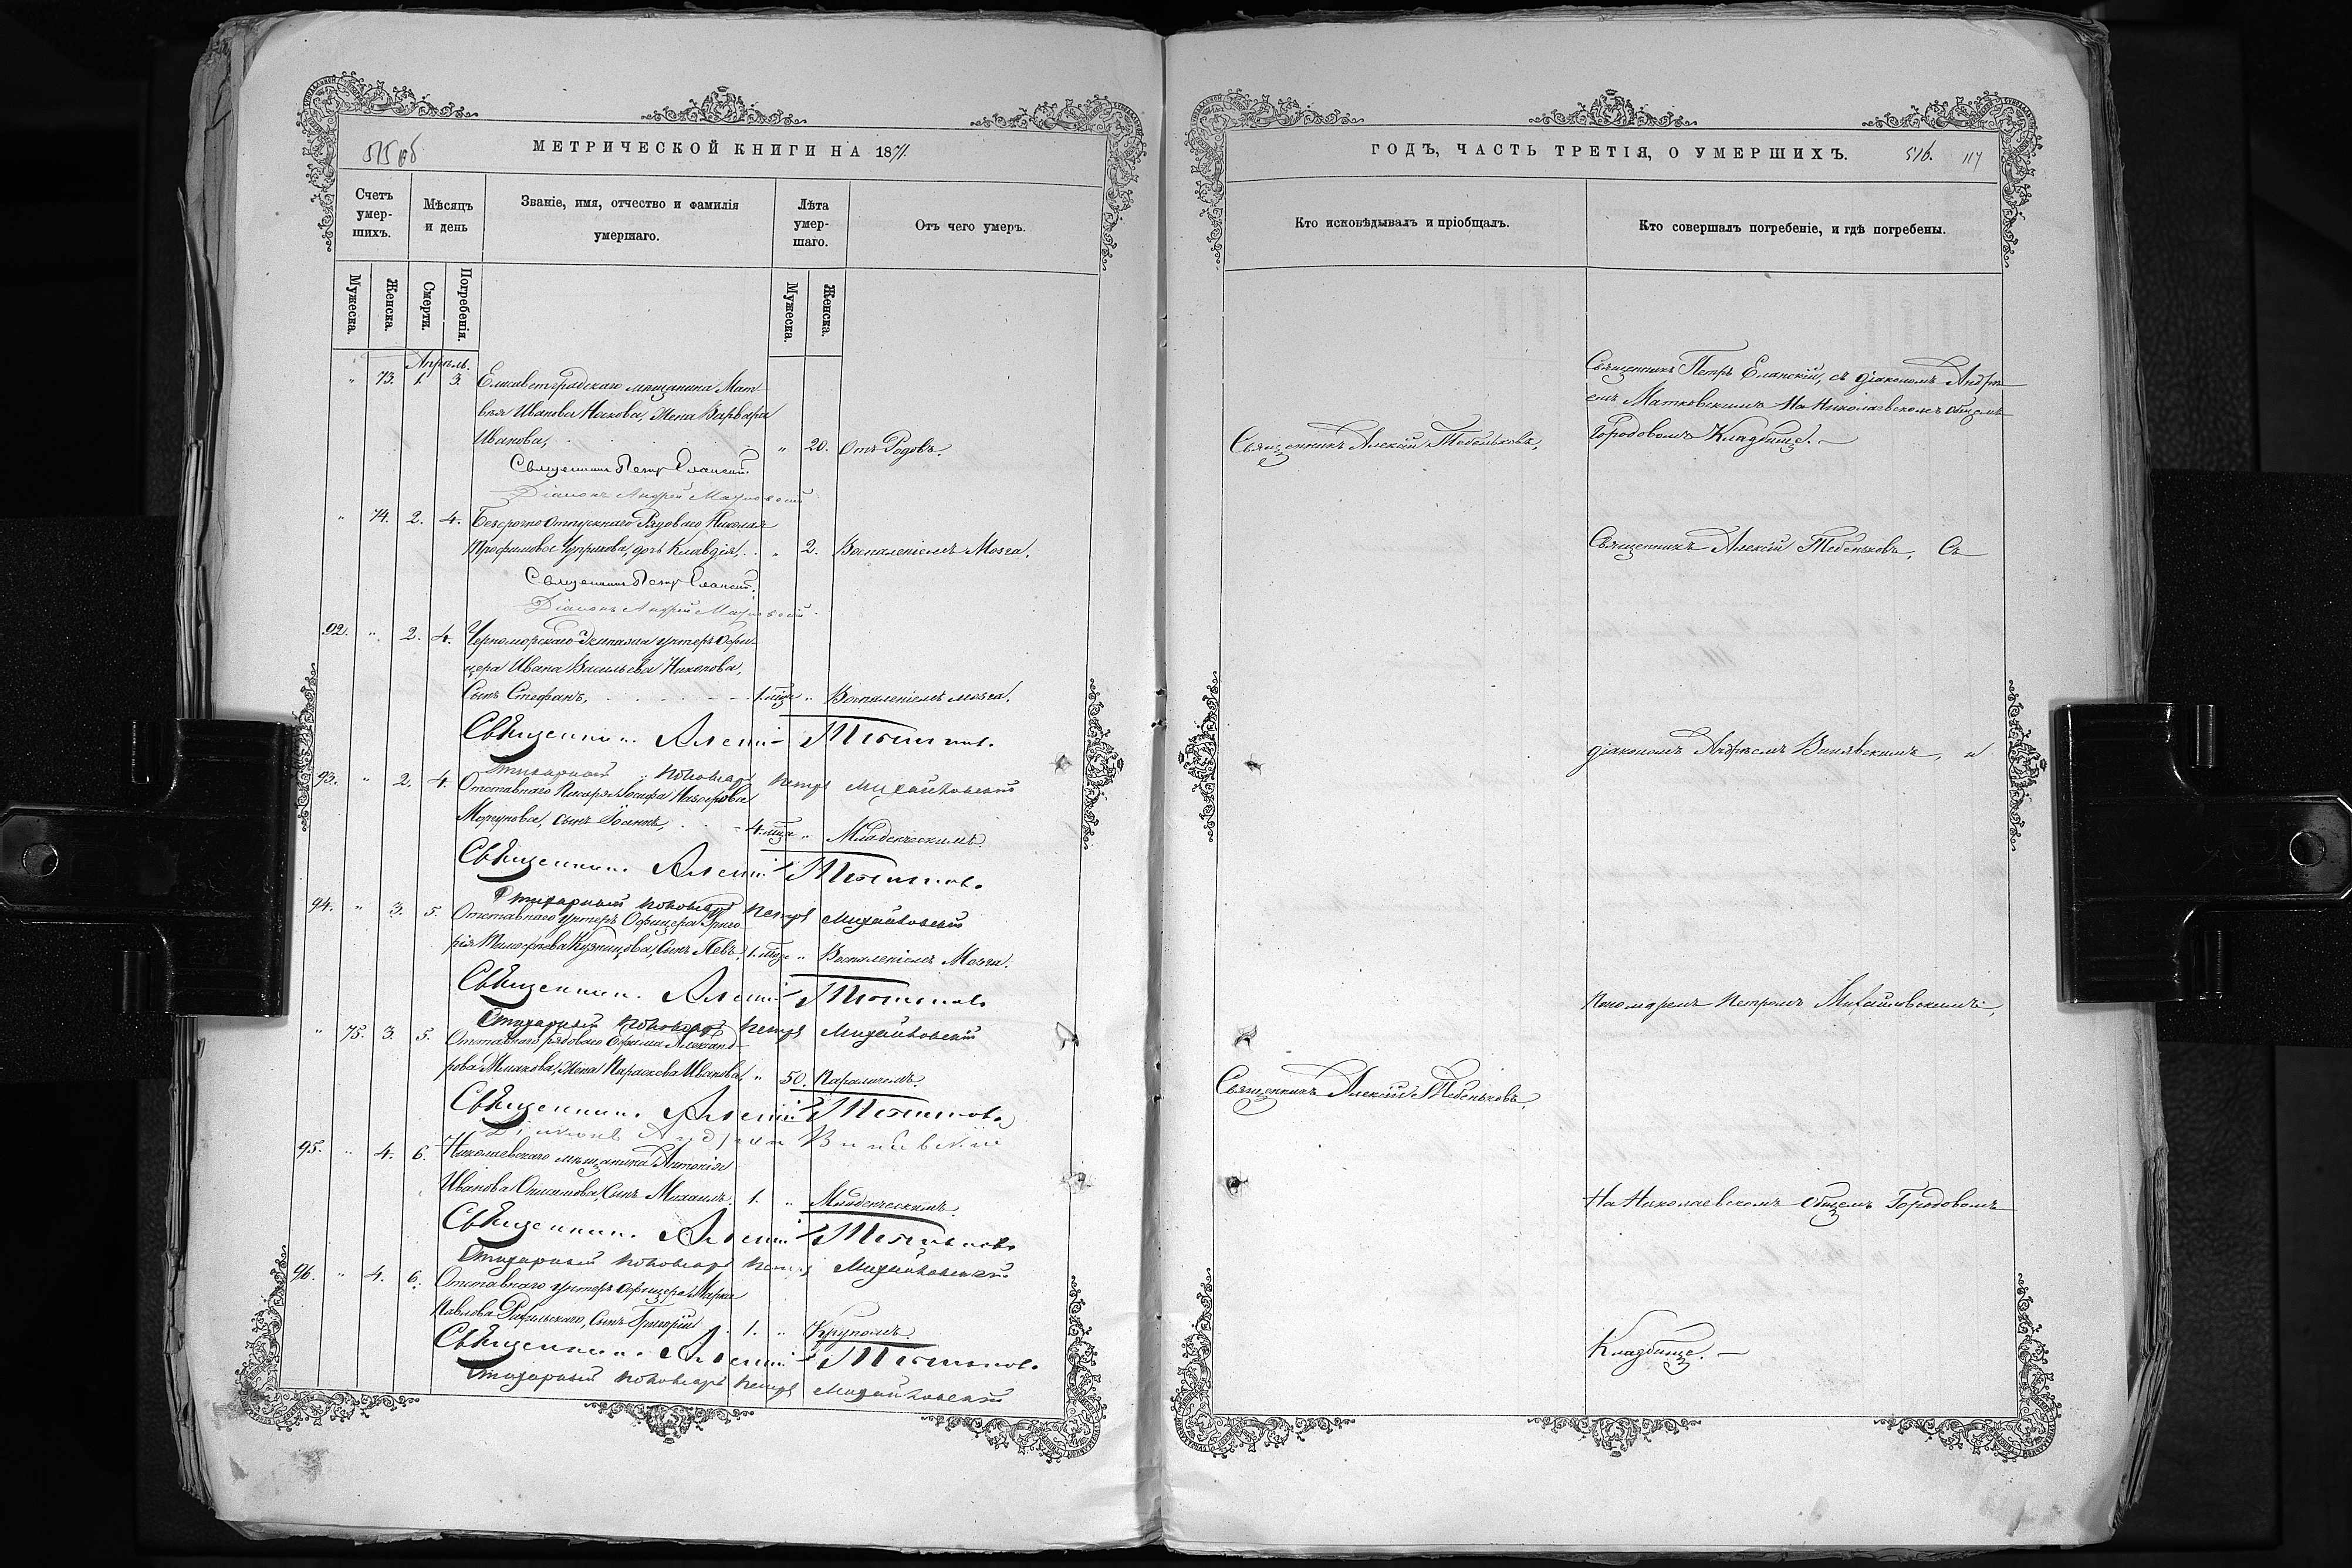 515 об
МЕТРИЧЕСКОЙ КНИГИ НА 1871.
Счетъ умер-шихъ.
Мѣсяцъ и день
Званіе, имя, отчество и фамилія умершаго.
Лѣта умер-шаго.
Отъ чего умеръ.
Мужеска.
Женска.
Смерти.
Погребенія.
Мужеска.
Женска.
Апрѣль.
" 73. 1. 3. Елисаветградскаго мѣщанина Мат
вѣя Иванова Жена Варвара
Иванова, " 20. Отъ Родовъ.
Священникъ Петръ Еланскій.
Діаконъ Андрей Матковскій
" 74. 2. 4. Безсрочно отпускнаго Рядоваго Николая
Трофимова дочь Клавдія. " 2. Воспаленіемъ Мозга.
Священникъ Петръ Еланскій.
Діаконъ Андрей Матковскій
92. " 2. 4. Черноморскаго Экипажа унтеръ Офи-
цера Ивана Васильева
Сынъ Стефанъ, 1. мца " Воспаленіемъ мозга.
Священникъ Алексій Тебеньковъ
Стихарный Пономарь Петръ Михайловскій
93. " 2. 4. Отставнаго Писаря Іосифа
Моргунова, сынъ Іоаннъ, 4. мца " Младенческимъ.
Священникъ Алексій Тебеньковъ
Стихарный Пономарь Петръ Михайловскій
94. " 3. 5. Отставнаго унтеръ Офицера Григо-
рія Тимофеева Кузнецова, Сынъ Левъ, 1. мца " Воспаленіемъ Мозга.
Священникъ Алексій Тебеньковъ
Стихарный Пономарь Петръ Михайловскій
" 75. 3. 5. Отставнаго рядоваго Ефима Александ-
рова Жена Параскева Иванова, " 50. Параличемъ.
Священникъ Алексій Тебеньковъ
Діаконъ Андрей Винявскій
95. " 4. 6. Николаевскаго мѣщанина Антонія
Иванова Сынъ Михаилъ. 1. " Младенческимъ.
Священникъ Алексій Тебеньковъ
Стихарный Пономарь Петръ Михайловскій
96. " 4. 6. Отставнаго унтеръ Офицера Марка
Павлова Сынъ Григорій 1. " Крупомъ.
Священникъ Алексій Тебеньковъ
Стихарный Пономарь Петръ Михайловскій
ГОДЪ, ЧАСТЬ ТРЕТІЯ, О УМЕРШИХЪ.
516. 117
Кто исковѣдывалъ и пріобщалъ.
Кто совершалъ погребеніе, и гдѣ погребены.
Священникъ Петръ Еланскій, съ діакономъ Андре
емъ Матковскимъ На Николаевскомъ общемъ
Священникъ Алексій Тебеньковъ,
Городовомъ Кладбище.
Священникъ Алексій Тебеньковъ, Съ
діакономъ Андреемъ Винявскимъ, и
Пономаремъ Петромъ Михайловскимъ,
Священникъ Алексій Тебеньковъ.
На Николаевскомъ общемъ Городовомъ
Кладбище.